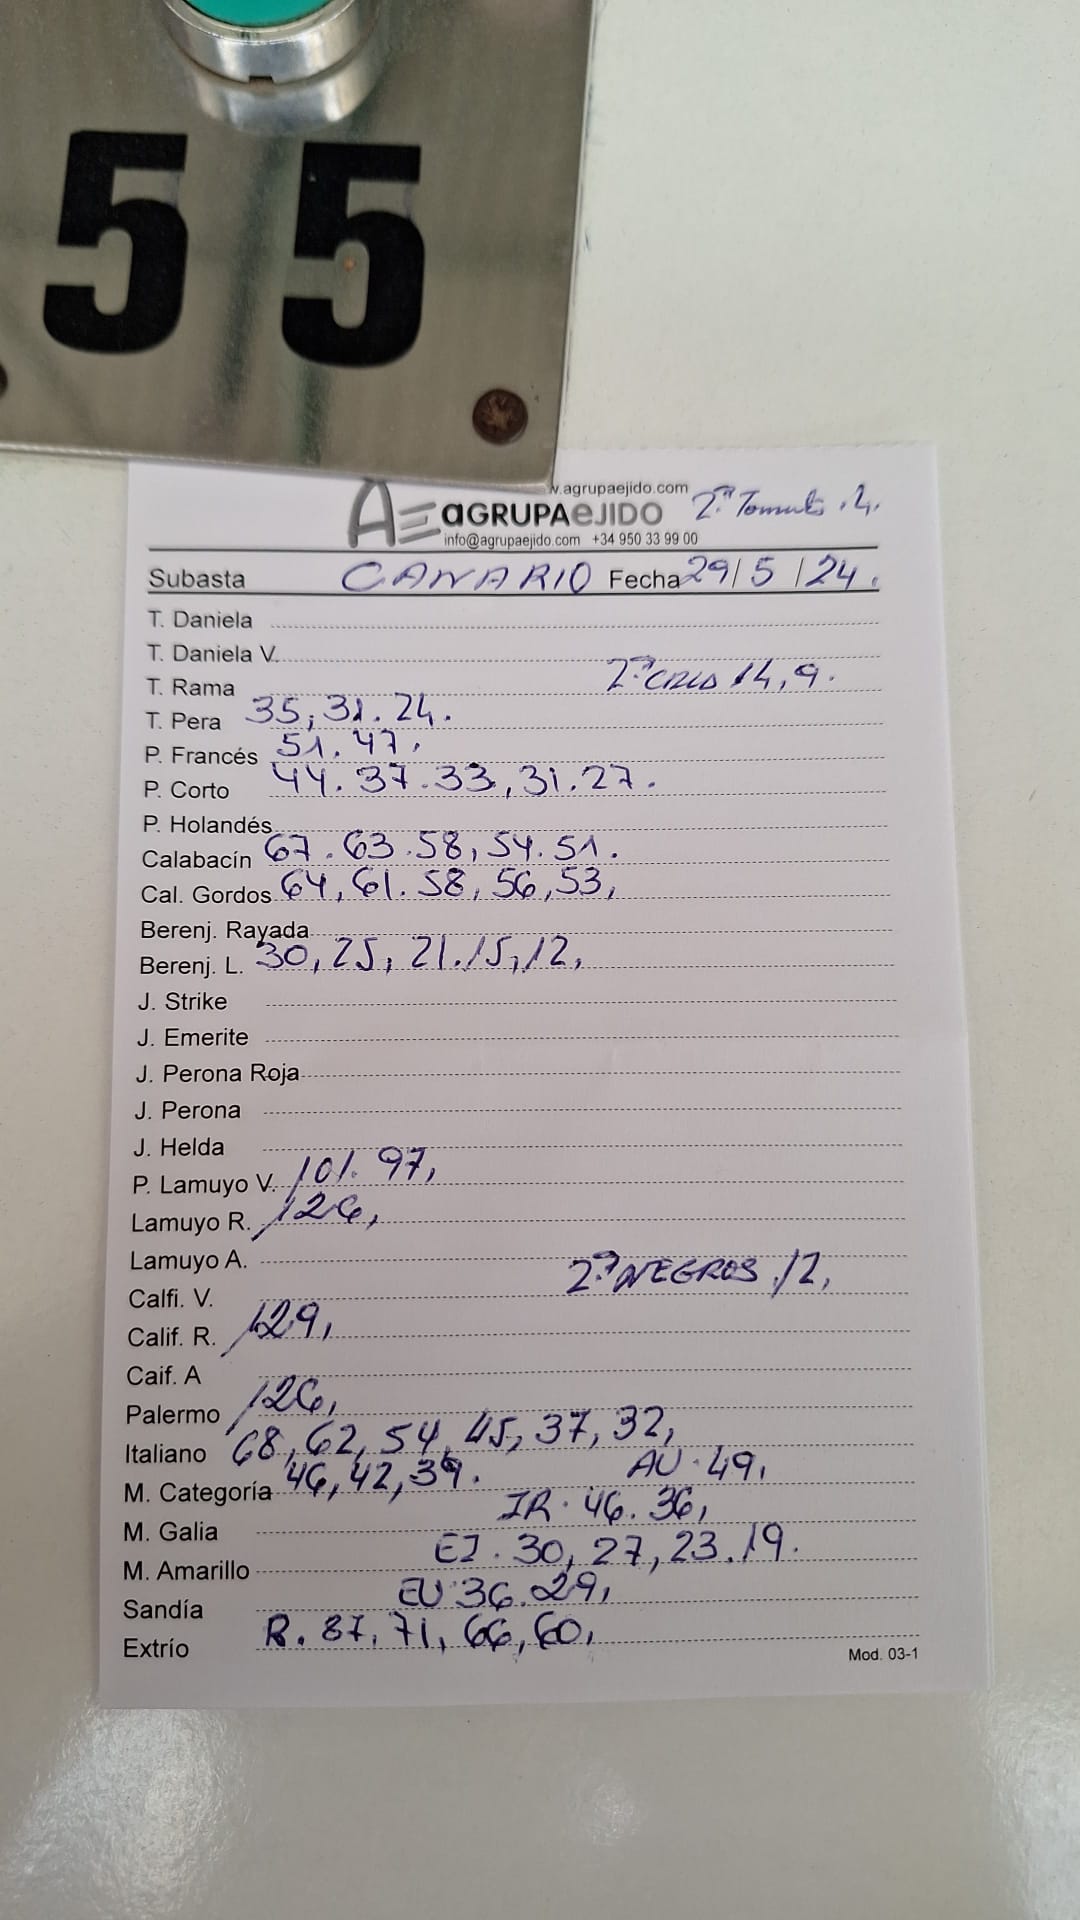 55
w.agrupaejido.com
AGRUPAEJIDO 2ª Tomate .4.
info@agrupaejido.com +34 950 33 99 00
Subasta CANARIO Fecha 29/5/24.
T. Daniela
T. Daniela V.
T. Rama 2ª 14,9.
T. Pera 35,31.24.
P. Francés 51.47,
P. Corto 44.37.33,31.27.
P. Holandés
Calabacín 67.63.58,54.51.
Cal. Gordos 64,61.58,56,53,
Berenj. Rayada
Berenj. L. 30,25,21.15,12,
J. Strike
J. Emerite
J. Perona Roja
J. Perona
J. Helda
P. Lamuyo V. 101.97,
Lamuyo R. 126,
Lamuyo A.
Calfi. V. 2ª NEGROS .12,
Calif. R. 129,
Caif. A
Palermo 126,
Italiano 68,62,54,45,37,32,
M. Categoría 46,42,39. AU.49,
M. Galia IR.46.36,
M. Amarillo EJ.30,27,23.19.
Sandía EU 36.29,
Extrío R.87,71,66,60,
Mod. 03-1